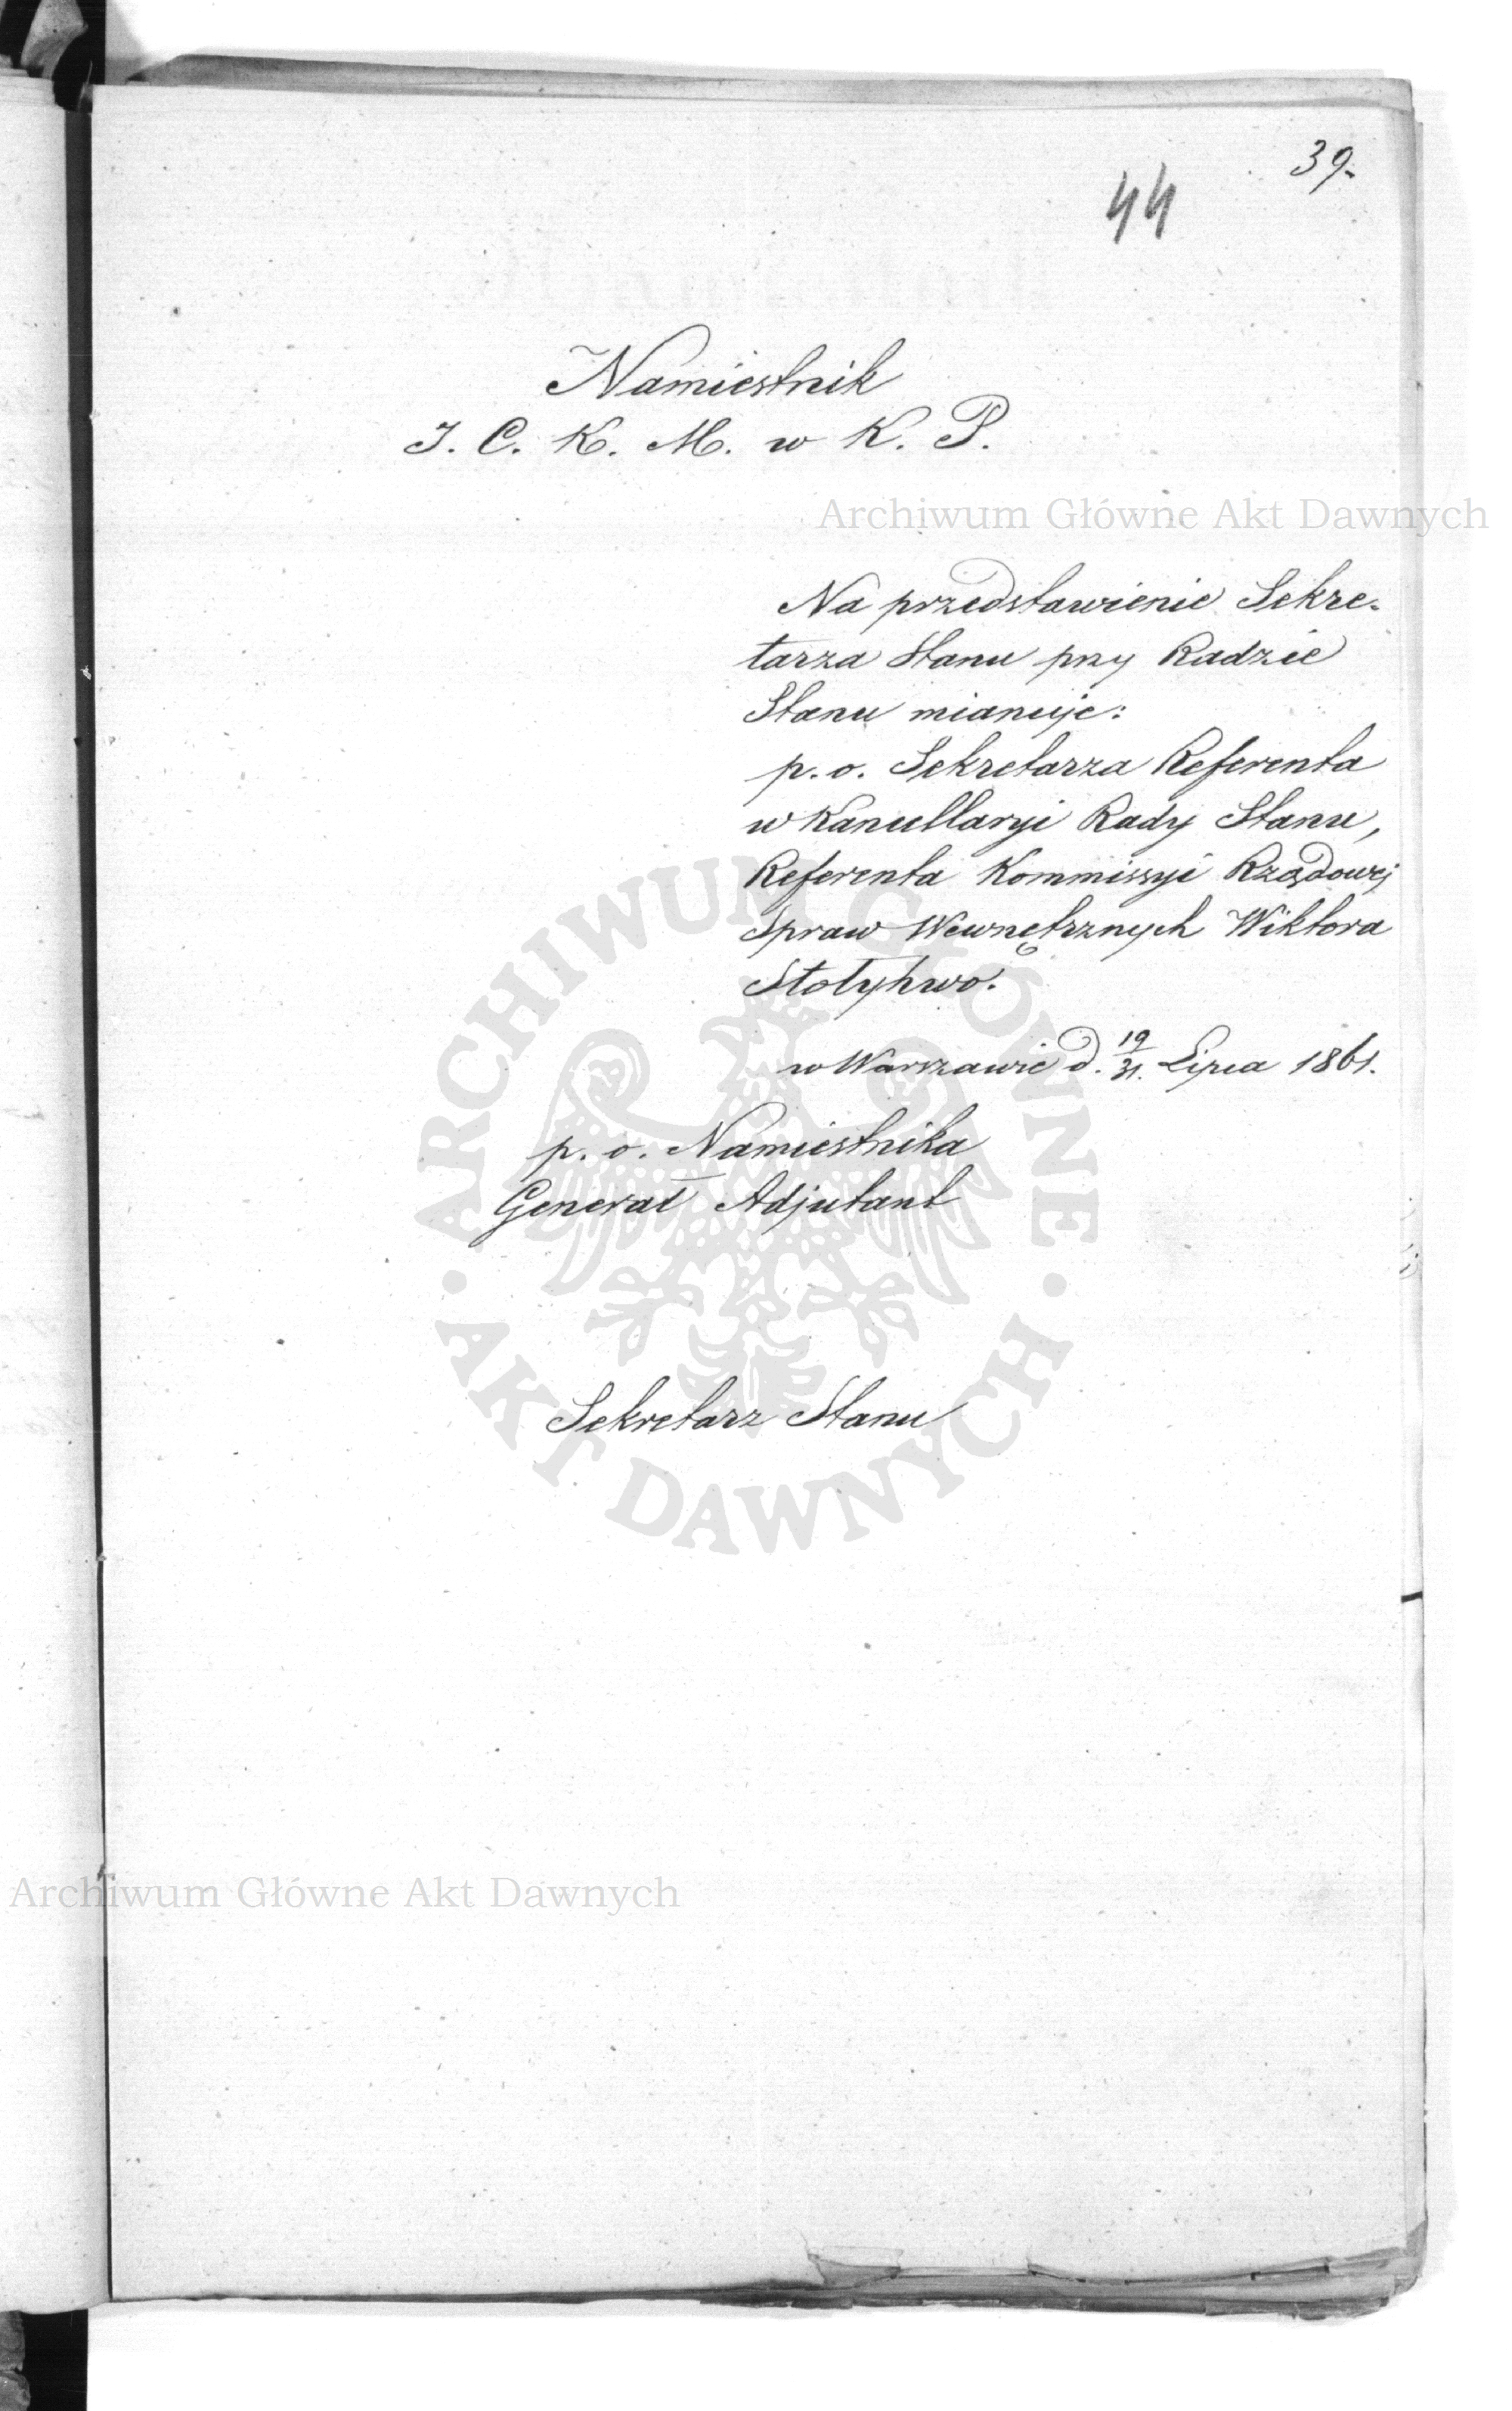 39.
44
Namiestnik
J. C. K. M. w K. P.
Archiwum Główne Akt Dawnych
Na przedstawienie Sekre-
tarza Stanu przy Radzie
Stanu mianuje:
p. o. Sekretarza Referenta
w Kancellaryi Rady Stanu,
Referenta Kommissyi Rządowej
Spraw Wewnętrznych Wiktora
Stołyhwo.
w Warszawie d. 19/31. Lipca 1861.
p. o. Namiestnika
Generał Adjutant
Sekretarz Stanu
ARCHIWUM GŁÓWNE
AKT DAWNYCH
Archiwum Główne Akt Dawnych